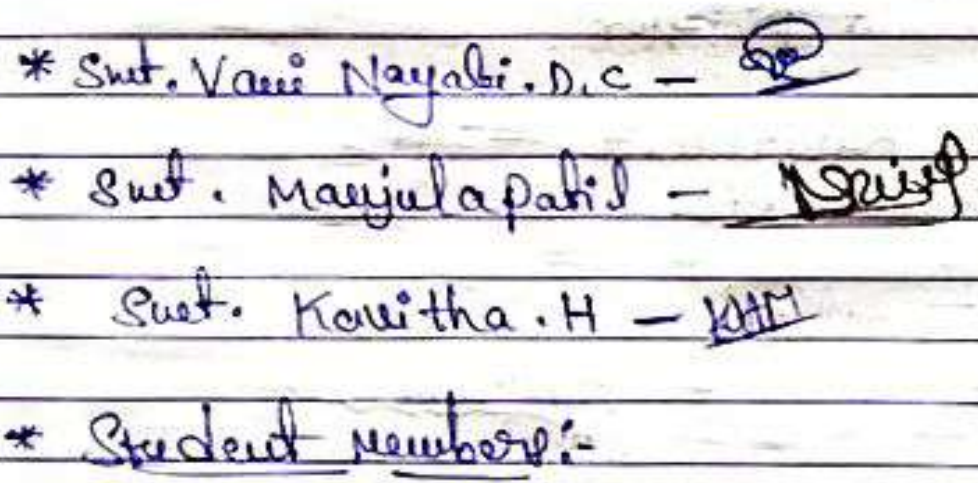 * Smt. Vani Nayabi. D. C -
* Smt. Manjula Patil -
* Smt. Kavitha. H - KHM
* Student Members:-